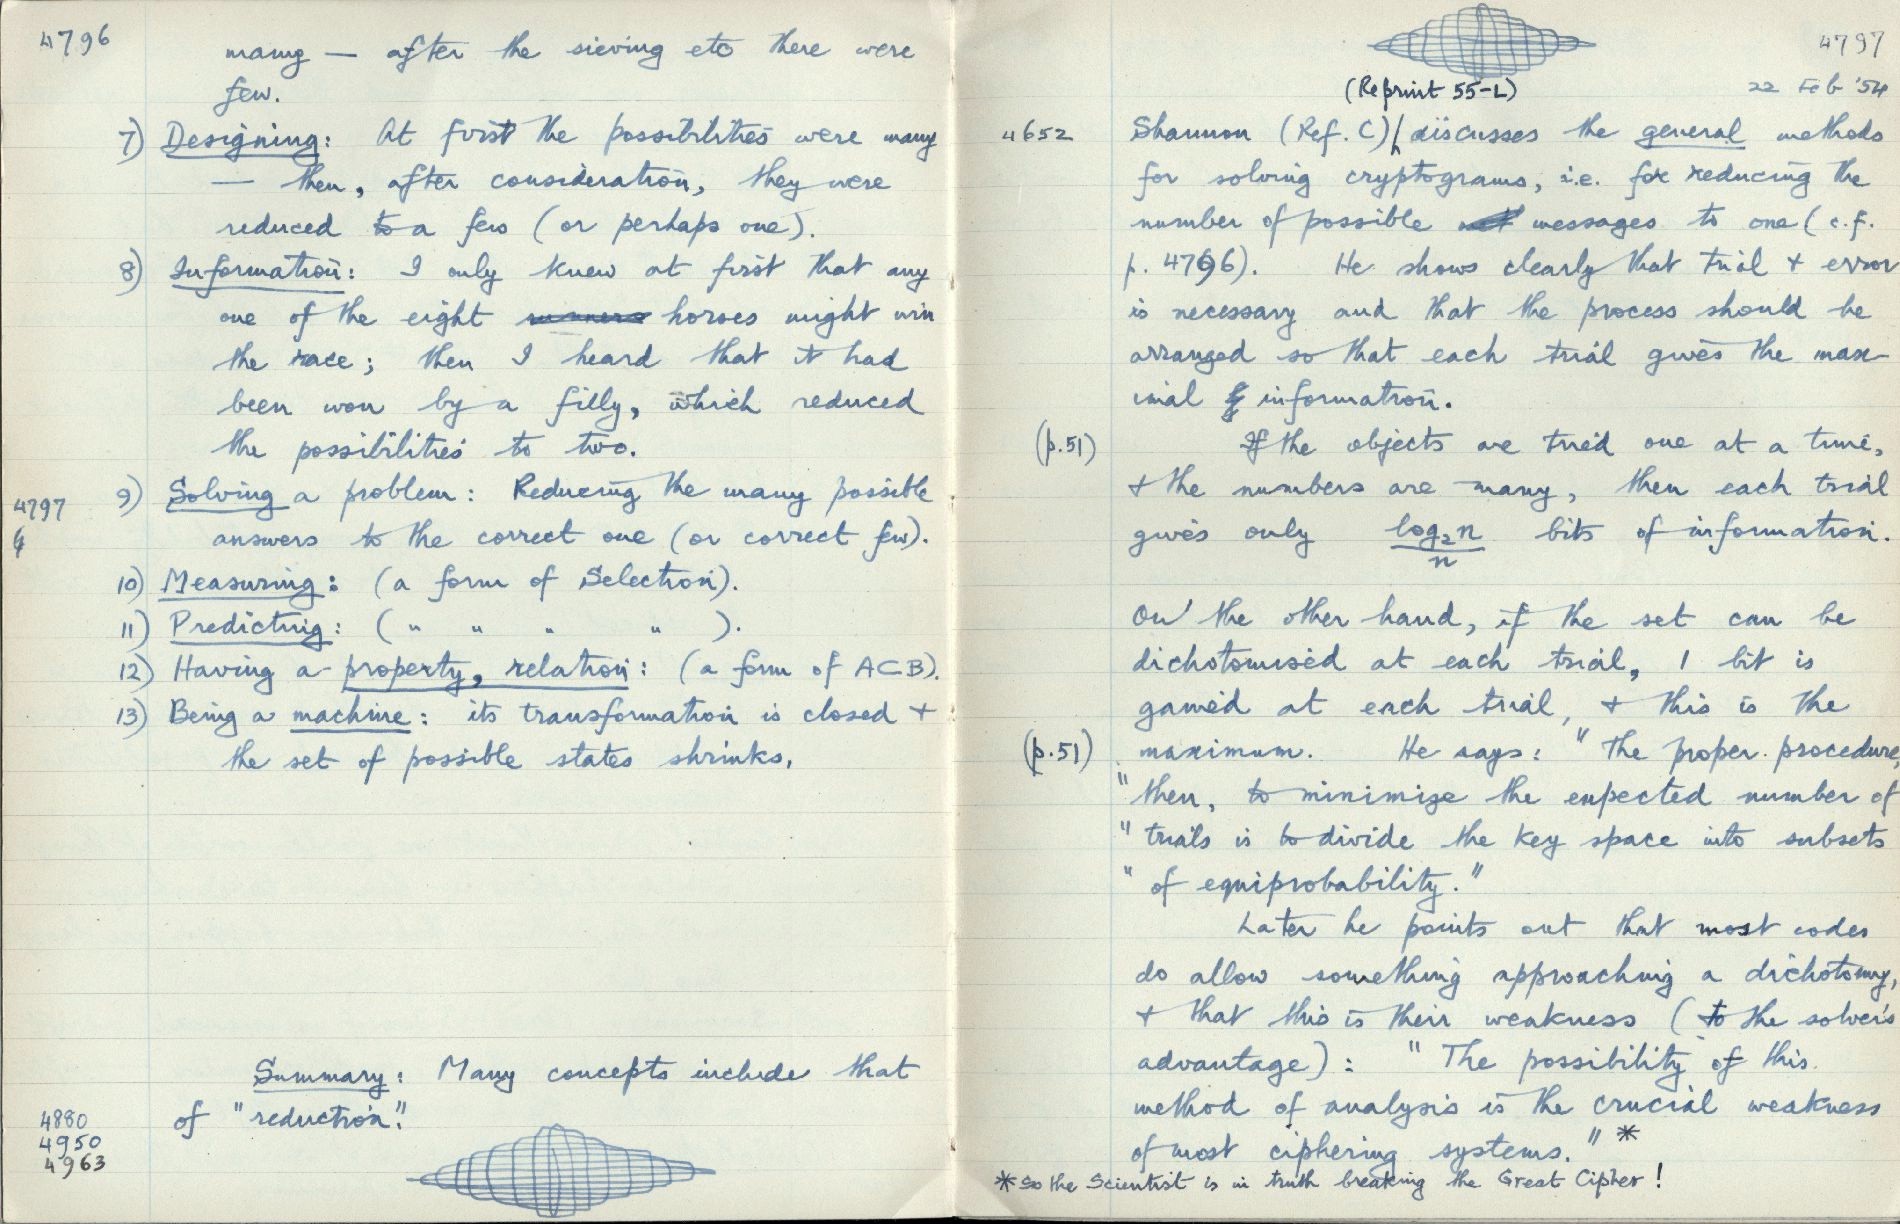 4796
many — after the sieving etc there were
few.
7) Designing: At first the possibilities were many
— then, after consideration, they were
reduced to a few (or perhaps one).
8) Information: I only knew at first that any
one of the eight runners horses might win
the race; then I heard that it had
been won by a filly, which reduced
the possibilities to two.
4797 9) Solving a problem: Reducing the many possible
answers to the correct one (or correct few).
10) Measuring: (a form of Selection).
11) Predicting: ( " " " " ).
12) Having a property, relation: (a form of ACB).
13) Being a machine: its transformation is closed +
the set of possible states shrinks.
Summary: Many concepts include that
of "reduction".
4880
4950
4963
4797
(Reprint 55-L) 22 Feb '54
4652 Shannon (Ref. C) discusses the general methods
for solving cryptograms, i.e. for reducing the
number of possible messages to one (c.f.
p. 4796). He shows clearly that trial + error
is necessary and that the process should be
arranged so that each trial gives the max-
imal information.
(p.51) If the objects are tried one at a time,
+ the numbers are many, then each trial
gives only log₂n/n bits of information.
On the other hand, if the set can be
dichotomised at each trial, 1 bit is
gained at each trial, + this is the
(p.51) maximum. He says: "The proper procedure,
"then, to minimize the expected number of
"trials is to divide the key space into subsets
"of equiprobability."
Later he points out that most codes
do allow something approaching a dichotomy,
+ that this is their weakness (to the solver's
advantage): "The possibility of this
method of analysis is the crucial weakness
of most ciphering systems." *
* So the Scientist is in truth breaking the Great Cipher!